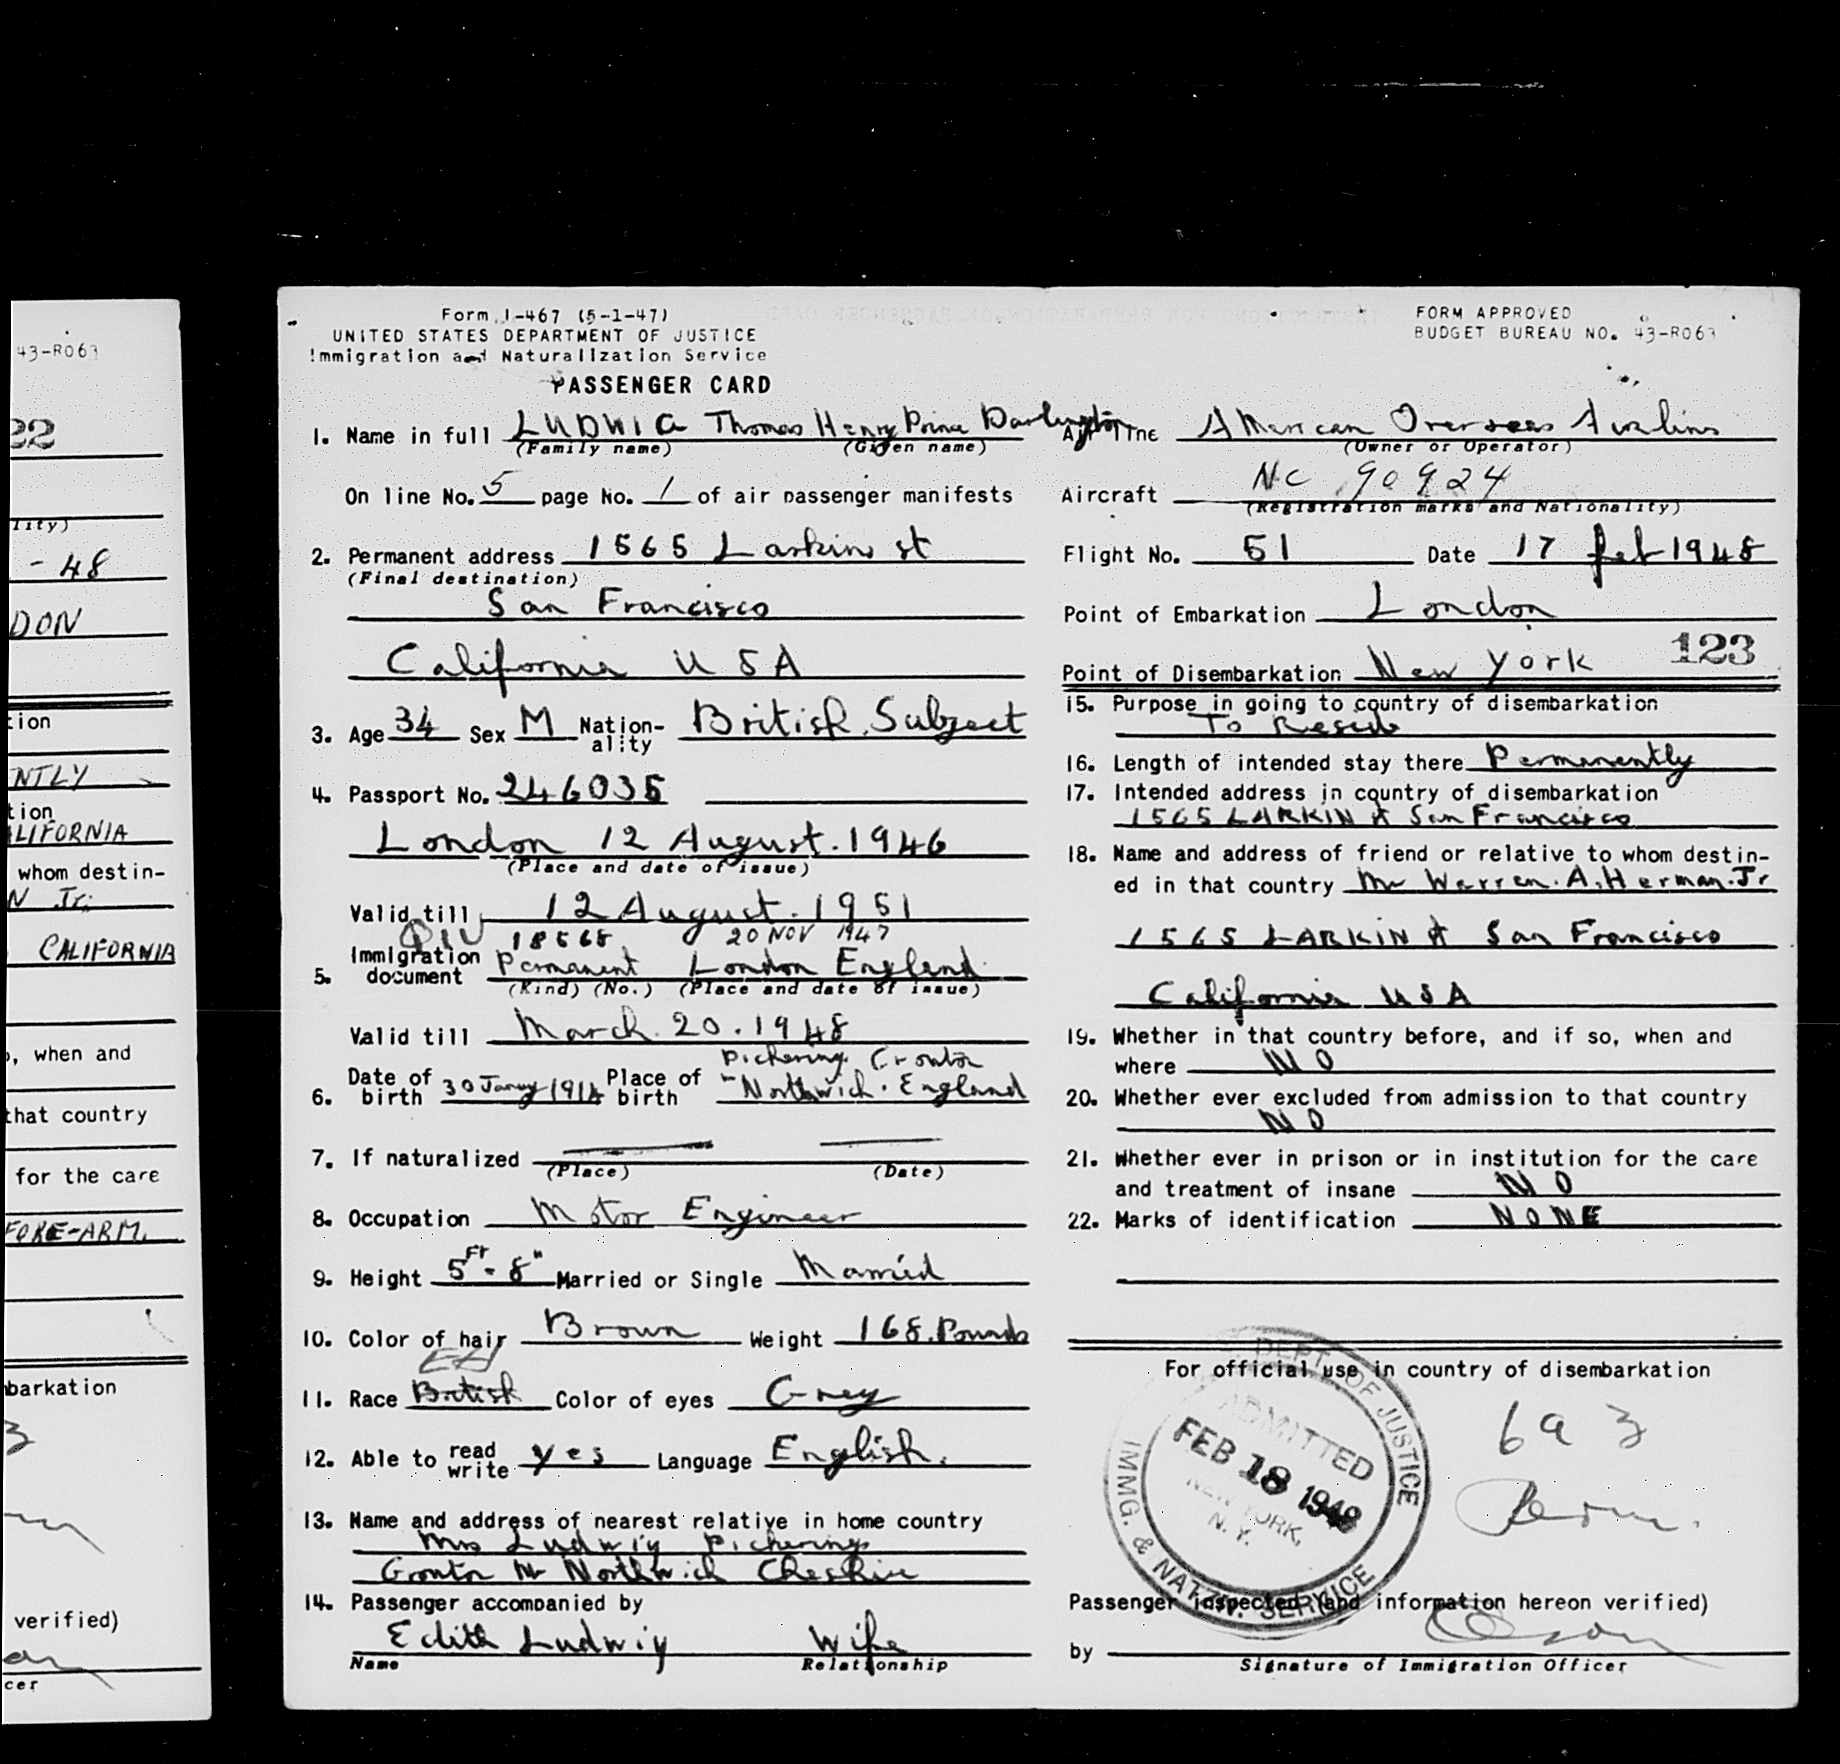 43-R063
22
lity)
- 48
DON
tion
NTLY
tion
ALIFORNIA
whom destin-
N Jr.
CALIFORNIA
, when and
that country
for the care
FORE-ARM.
barkation
3
verified)
cer
Form I-467 (5-1-47)
UNITED STATES DEPARTMENT OF JUSTICE
Immigration and Naturalization Service
PASSENGER CARD
1. Name in full LUDWIG Thomas Henry Prince Darlington
(Family name) (Given name)
On line No. 5 page No. 1 of air passenger manifests
2. Permanent address 1565 Larkin st
(Final destination)
San Francisco
California USA
3. Age 34 Sex M Nation-ality British Subject
4. Passport No. 246035
London 12 August. 1946
(Place and date of issue)
Valid till 12 August. 1951
QIV 18568 20 NOV 1947
5. Immigration document Permanent London England
(Kind) (No.) (Place and date of issue)
Valid till March 20. 1948
Pickering. Crowton
6. Date of birth 30 Jany 1914 Place of birth Northwich. England
7. If naturalized
(Place) (Date)
8. Occupation Motor Engineer
9. Height 5 Ft - 8" Married or Single Married
10. Color of hair Brown Weight 168. Pounds
11. Race British Color of eyes Grey
12. Able to read write yes Language English.
13. Name and address of nearest relative in home country
Mrs Ludwig Pickerings
Crowton Nr Northwich Cheshire
14. Passenger accompanied by
Edith Ludwig Wife
Name Relationship
FORM APPROVED
BUDGET BUREAU NO. 43-R063
Air line American Overseas Airlines
(Owner or Operator)
Aircraft NC 90924
(Registration marks and Nationality)
Flight No. 51 Date 17 Feb 1948
Point of Embarkation London
123
Point of Disembarkation New York
15. Purpose in going to country of disembarkation
To Reside
16. Length of intended stay there Permanently
17. Intended address in country of disembarkation
1565 LARKIN st San Francisco
18. Name and address of friend or relative to whom destin-
ed in that country Mr Warren. A. Herman. Jr
1565 LARKIN st San Francisco
California USA
19. Whether in that country before, and if so, when and
where NO
20. Whether ever excluded from admission to that country
NO
21. Whether ever in prison or in institution for the care
and treatment of insane NO
22. Marks of identification NONE
For official use in country of disembarkation
DEPT. OF JUSTICE
ADMITTED
FEB 18 1948
NEW YORK,
N. Y.
IMMG. & NATZN. SERVICE
6a 3
Passenger inspected (and information hereon verified)
by
Signature of Immigration Officer